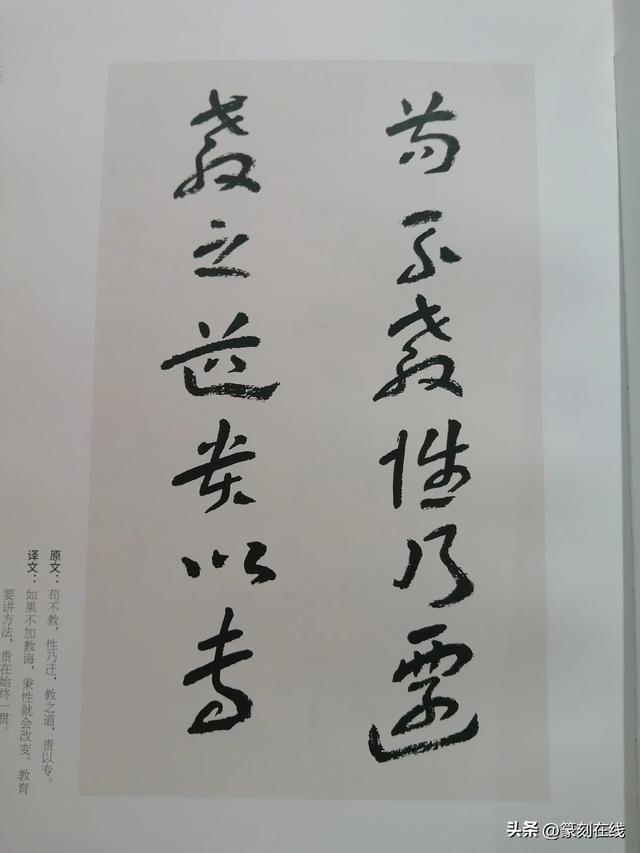 苟不教性乃遷
教之道貴以專
原文：苟不教，性乃迁，教之道，贵以专。
译文：如果不加教诲，秉性就会改变。教育
要讲方法，贵在始终一贯。
头条 @篆刻在线